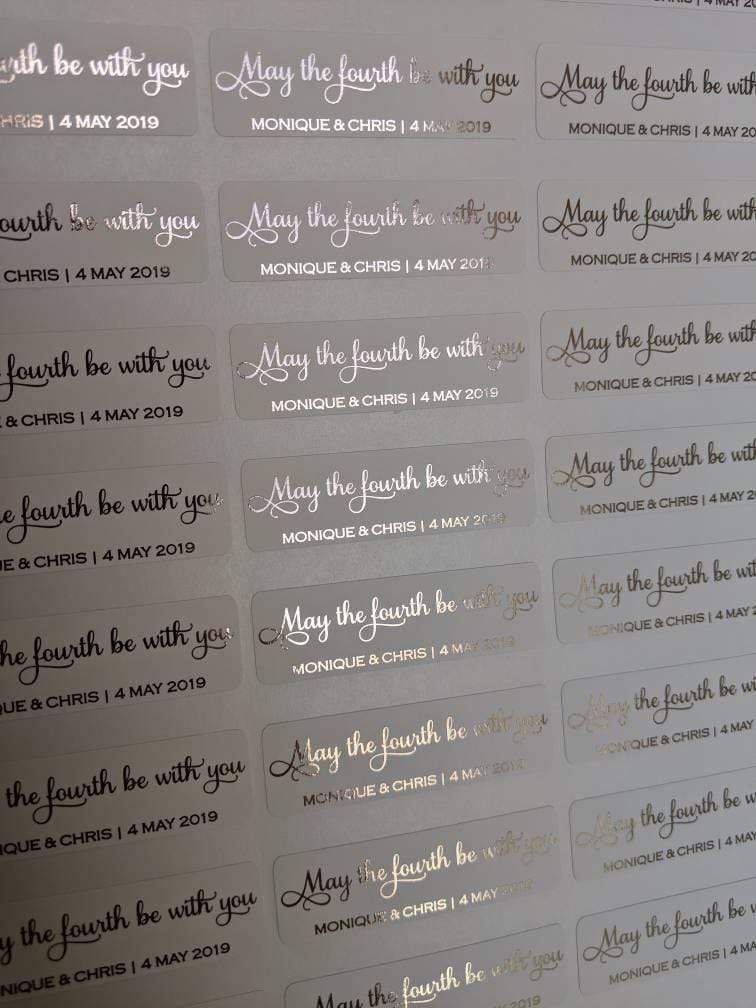 CHRIS | 4 MAY 20
urth be with you
CHRIS | 4 MAY 2019
May the fourth be with you
MONIQUE & CHRIS | 4 MAY 2019
May the fourth be with
MONIQUE & CHRIS | 4 MAY 20
ourth be with you
CHRIS | 4 MAY 2019
May the fourth be with you
MONIQUE & CHRIS | 4 MAY 2019
May the fourth be with
MONIQUE & CHRIS | 4 MAY 20
fourth be with you
& CHRIS | 4 MAY 2019
May the fourth be with you
MONIQUE & CHRIS | 4 MAY 2019
May the fourth be with
MONIQUE & CHRIS | 4 MAY 20
e fourth be with you
UE & CHRIS | 4 MAY 2019
May the fourth be with you
MONIQUE & CHRIS | 4 MAY 2019
May the fourth be with
MONIQUE & CHRIS | 4 MAY 2
he fourth be with you
UE & CHRIS | 4 MAY 2019
May the fourth be with you
MONIQUE & CHRIS | 4 MAY 2019
May the fourth be wit
MONIQUE & CHRIS | 4 MAY 2
the fourth be with you
QUE & CHRIS | 4 MAY 2019
May the fourth be with you
MONIQUE & CHRIS | 4 MAY 2019
May the fourth be wi
MONIQUE & CHRIS | 4 MAY
y the fourth be with you
NIQUE & CHRIS | 4 MAY 2019
May the fourth be with you
MONIQUE & CHRIS | 4 MAY 2019
May the fourth be w
MONIQUE & CHRIS | 4 MAY
May the fourth be with you
2019
May the fourth be w
MONIQUE & CHRIS | 4 MAY